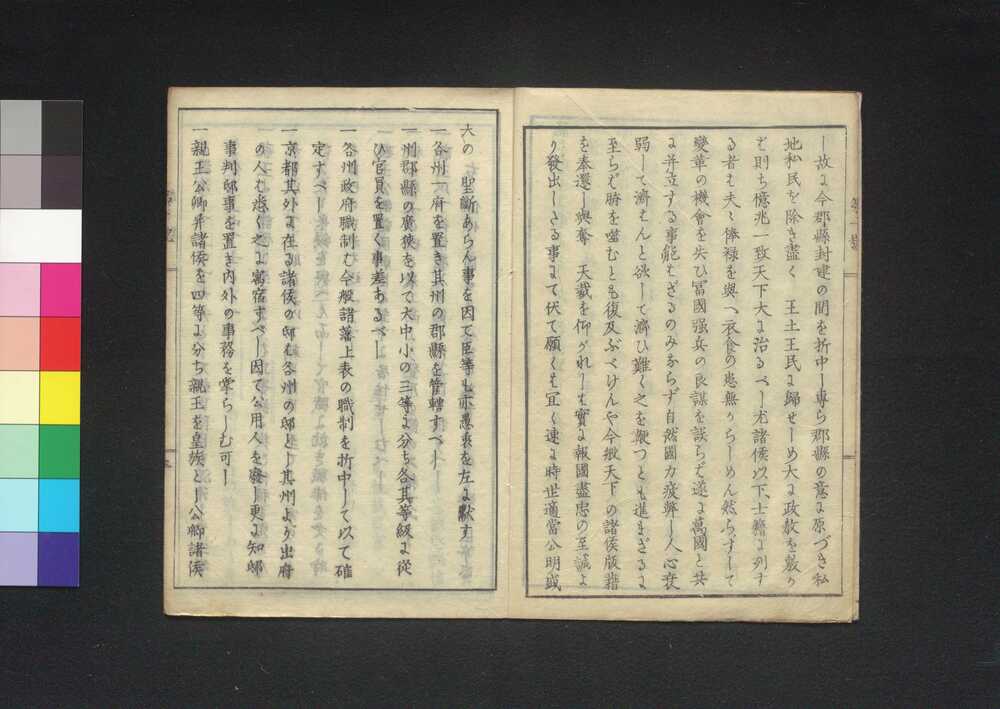 し故に今郡縣封建の間を折中し専ら郡縣の意に原づき私
地私民を除き盡く 王土王民に歸せしめ大に政教を敷か
ば則ち億兆一致天下大に治るべし尤諸侯以下、士籍に列す
る者は夫々俸禄を與へ衣食の患無からしめん然らずして
變革の機會を失ひ冨國强兵の良謀を誤らば遂に萬國と共
に并立する事能はざるのみならず自然國力疲弊し人心衰
弱して濟はんと欲して濟ひ難く之を鞭つとも進まざるに
至らば臍を噬むとも復及ぶべけんや今般天下の諸侯版籍
を奉還し與奪 天裁を仰がれしは實に報國盡忠の至誠よ
り發出したる事にて伏て願くは宜く速に時世適當公明盛
大の 聖斷あらん事を因て臣等も亦愚衷を左に獻す
一各州一府を置き其州の郡縣を管轄すべし
一州郡縣の廣狹を以て大中小の三等に分ち各其等級に從
ひ官員を置く事差あるべし
一各州政府職制は今般諸藩上表の職制を折中して以て確
定すべし
一京都其外に在る諸侯の邸は各州の邸とし其州より出府
の人は悉く之に寓宿すべし因て公用人を廢し更に知邸
事判邸事を置き内外の事務を掌らしむ可し
一親王公卿并諸侯を四等に分ち親王を皇族とし公卿諸侯